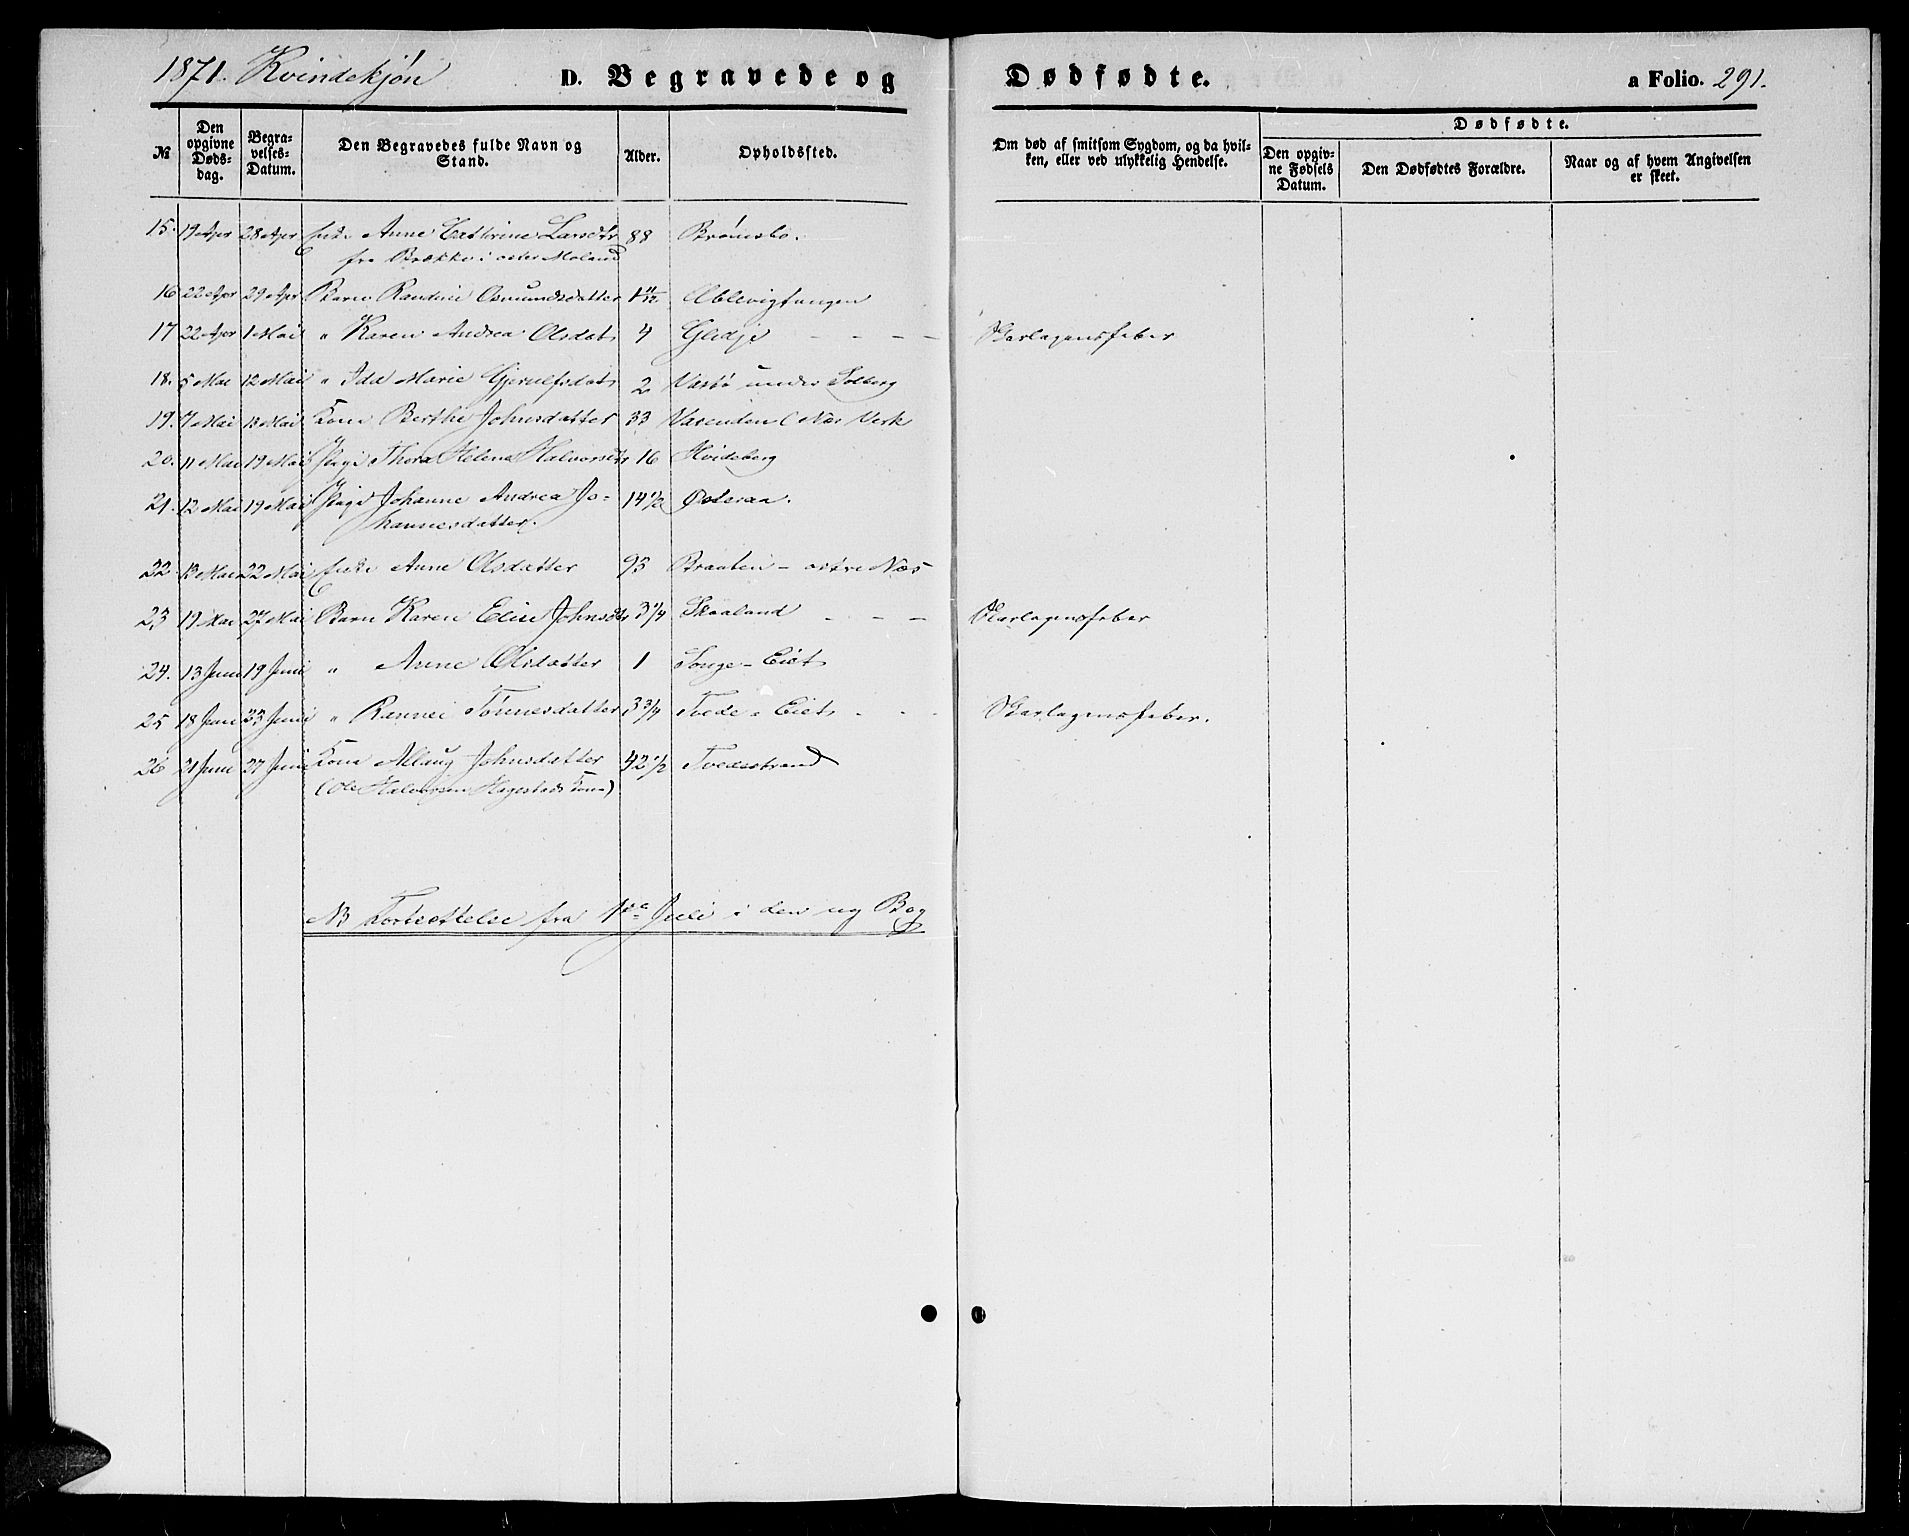 1871. Kvindekjön D. Begravede og Dødfødte. a Folio. 291.
№ Den opgivne Døds-dag. Begra-velses-Datum. Den Begravedes fulde Navn og Stand. Alder. Opholdssted. Om død af smitsom Sygdom, og da hvil-ken, eller ved ulykkelig Hendelse. Dødfødte. Den opgiv-ne Fødsels Datum. Den Dødfødtes Forældre. Naar og af hvem Angivelsen er skeet.
15. 19 Apr 28 Apr Enke Anne Cathrine Larsdtr 88 Brömsbo.
fra Brække i oster Moland
16 22 Apr 29 Apr Barn Randine Osmundsdatter 1 11/12 Ablevigtangen
17 22 Apr 1 Mai " Karen Andrea Olsdat 4 Gledje - - - - Skarlagensfeber
18. 5 Mai 12 Mai " Ida Marie Gjerulfsdat 2 under Solberg
19. 7 Mai 13 Mai Kone Berthe Johnsdatter 33 Vasenden (Nes Verk
20. 11 Mai 19 Mai Pige Thora Helene Halvorsdtr 16 Hvideberg
21. 12 Mai 19 Mai Pige Johanne Andrea Jo- 14 1/2 Osteraa.
hannesdatter.
22. 13 Mai 22 Mai Enke Anne Olsdatter 95 Braaten - østre Næs
23 19 Mai 27 Mai Barn Karen Elise Johnsdtr 3 1/4 Skaaland - - - Skarlagensfeber
24. 13 Juni 19 Juni " Anne Olsdatter 1 Songe - Eiet
25 18 Juni 23 Juni " Rannei Tönnesdatter 3 3/4 Tvede - Eiet - - - Skarlagensfeber.
26 21 Juni 27 Juni Kone Allaug Johnsdatter 42 1/2 Tvedestrand
(Ole Halvorsen Hagestads Kone)
NB Fortsættelse fra 1ste Juli i den ny Bog